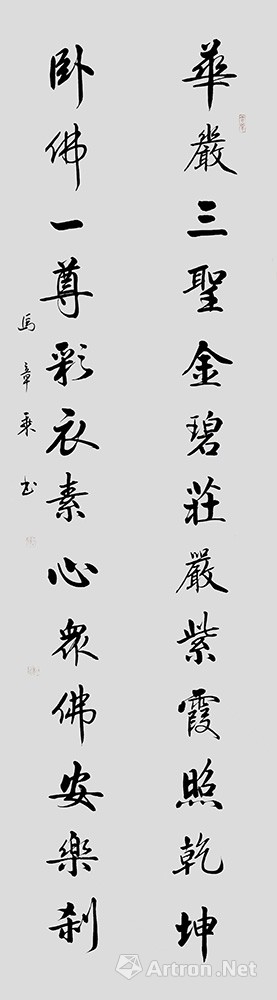 華嚴三聖金碧莊嚴紫霞照乾坤
卧佛一尊彩衣素心眾佛安樂刹
馬章乘书
Artron.Net